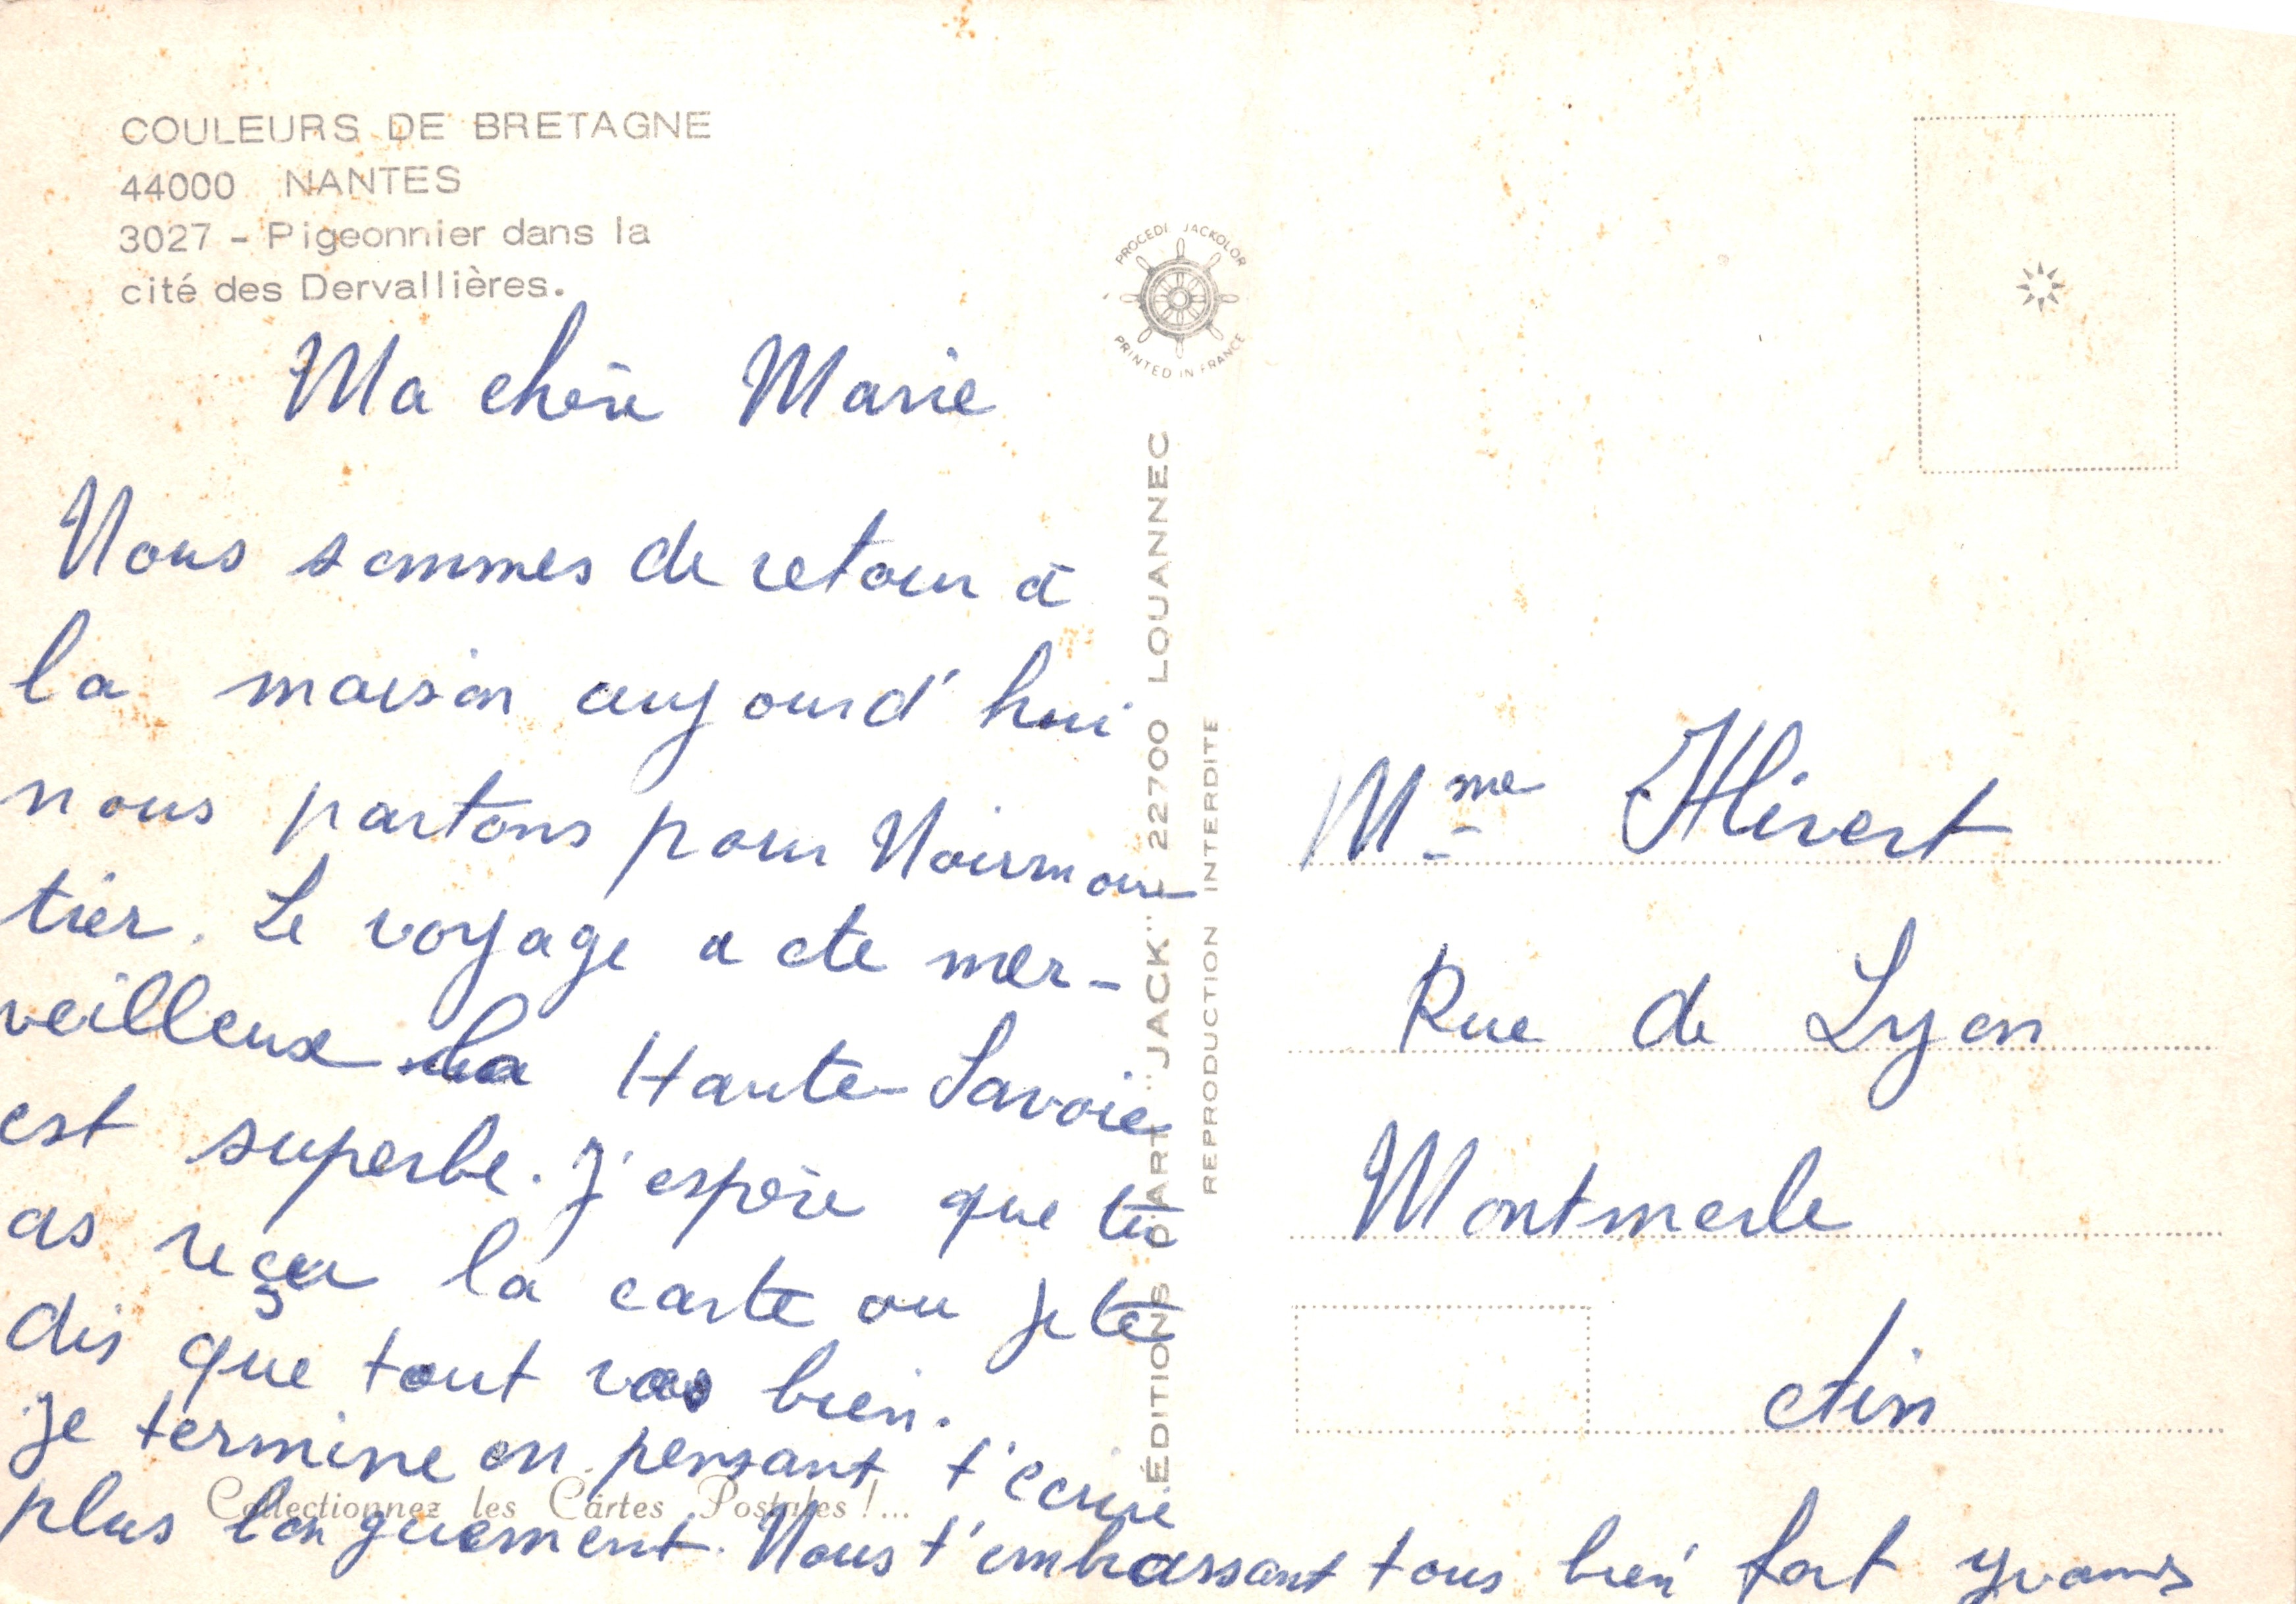 COULEURS DE BRETAGNE
44000 NANTES
3027 - Pigeonnier dans la
cité des Dervallières.
Ma chère Marie
Nous sommes de retour à
la maison aujourd'hui
nous partons pour Noirmou
tier. Le voyage a ete mer-
veilleux la Haute-Savoie
est superbe. J'espère que tu
as reçu la carte ou je te
dis que tout vas bien.
Je termine en pensant t'ecrire
plus longuement. Nous t'embrassant tous bien fort
Collectionnez les Cartes Postales !...
PROCEDE JACKOLOR
PRINTED IN FRANCE
ÉDITIONS D'ART "JACK" 22700 LOUANNEC
REPRODUCTION INTERDITE
Mme Hivert
Rue de Lyon
Montmerle
Ain